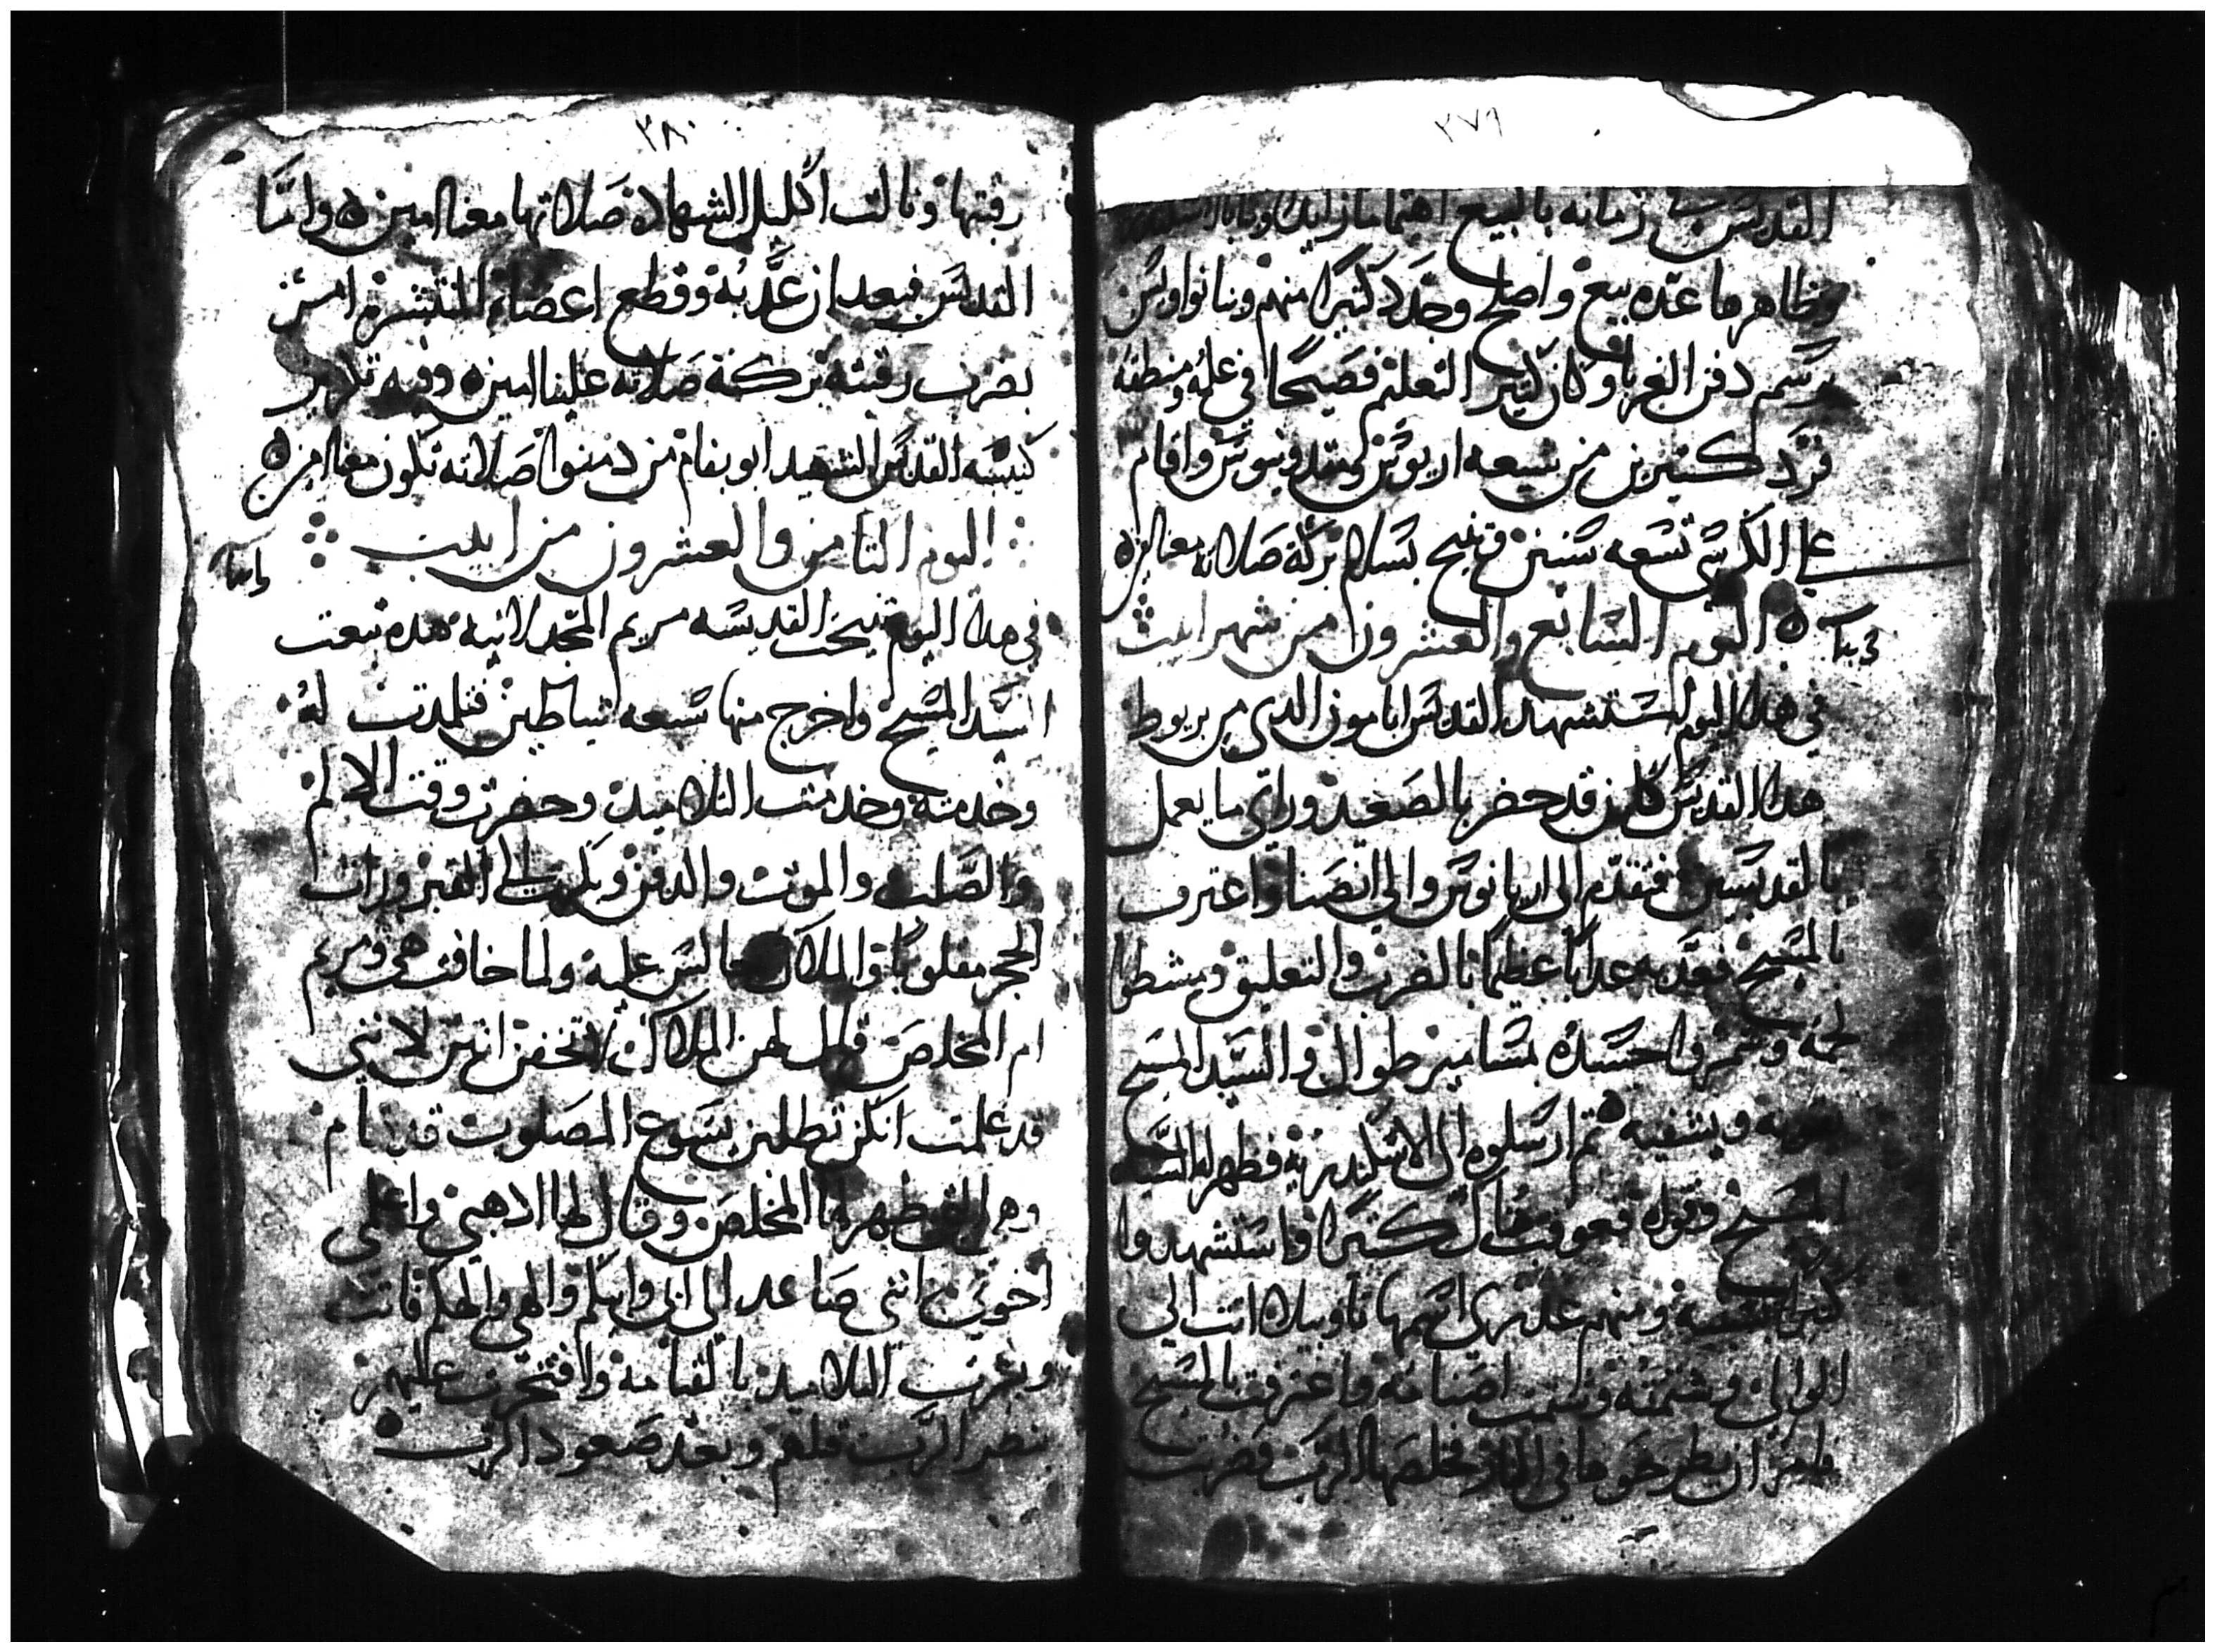 ٢٧٩
القديس في زمانه بالبيع اهتماما زايدا وبنا بالاسكندريه
وظاهرها عده بيع واصلح وجدد كتيرا منهم وبنا نواويس
برسم دفن الغربا وكان كتير التعليم فصيحا في علمه ومنطقه
فرد كتيرين من شيعه اريوس ومقدونيوس واقام
علي الكرسي تسعه سنين وتنيح بسلام بركة صلاته معنا امين
اليوم السابع والعشرون من شهر ابيب
في هدا اليوم استشهد القديس ابامون الدي من
هدا القديس كان قد حضر بالصعيد وراي ما يعمل
بالقديسين فتقدم الي اريانوس والي انصنا واعترف
بالمسيح فعدبه عدابا عظيما بالضرب والتعليق ومشطوا
لحمه وسمروا جسده بمسامير طوال والسيد المسيح
يقويه ويشفيه ثم ارسلوه الي الاسكندريه فظهر له السيد
المسيح وقواه فعوقب هناك كتيرا واستشهدوا
كتير بسببه ومنهم عدري اسمها تاوبيلا اتت الي
الوالي وشتمته وشتمت اصنامه واعترفت بالمسيح
فامر ان يطرحوها في النار فخلصها الرب فضربت
٢٨٠
رقبتها ونالت اكليل الشهاده صلاتها معنا امين واما
القديس فبعد ان عدبه وقطع اعضاه المنتشره امر
بضرب رقبته بركة صلاته علينا امين وفيه تكريز
كنيسه القديس الشهيد ابو بفام من صلاته تكون معنا امين
اليوم التامن والعشرون من ابيب
في هدا اليوم تنيحت القديسه مريم المجدلانيه هده تبعت
السيد المسيح واخرج منها سبعه شياطين فتلمدت له
وخدمته وخدمت التلاميد وحضرت وقت الالام
والصلب والموت والدفن وبكرت الي القبر ورات
الحجر مقلوبا والملاك جالس عليه ولما خافت هي ومريم
ام المخلص قال لهن الملاك لا تخفن انتن لانني
قد علمت انكن تطلبن يسوع المصلوب قد قام
وهي التي ظهر لها المخلص وقال لها ادهبي واعلمي
اخوتي انني صاعد الي ابي وابيكم والهي والهكم فاتت
وبشرت التلاميد بالقيامه وافتخرت عليهم
بنضر الرب قبلهم وبعد صعود الرب